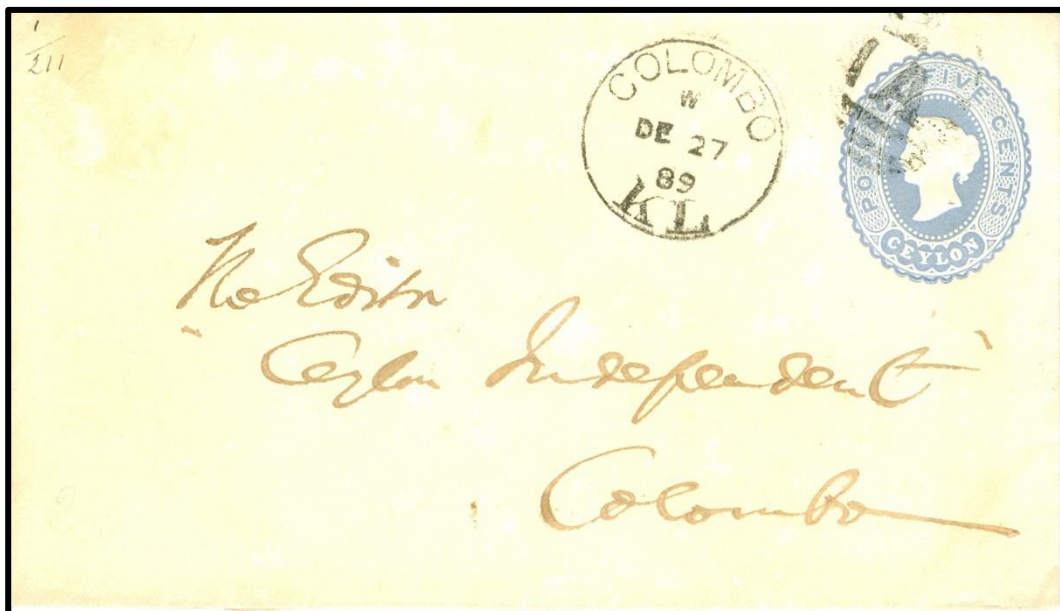 1
211
COLOMBO
W
DE 27
89
POSTAGE FIVE CENTS
CEYLON
The Editor
"Ceylon Independent"
Colombo